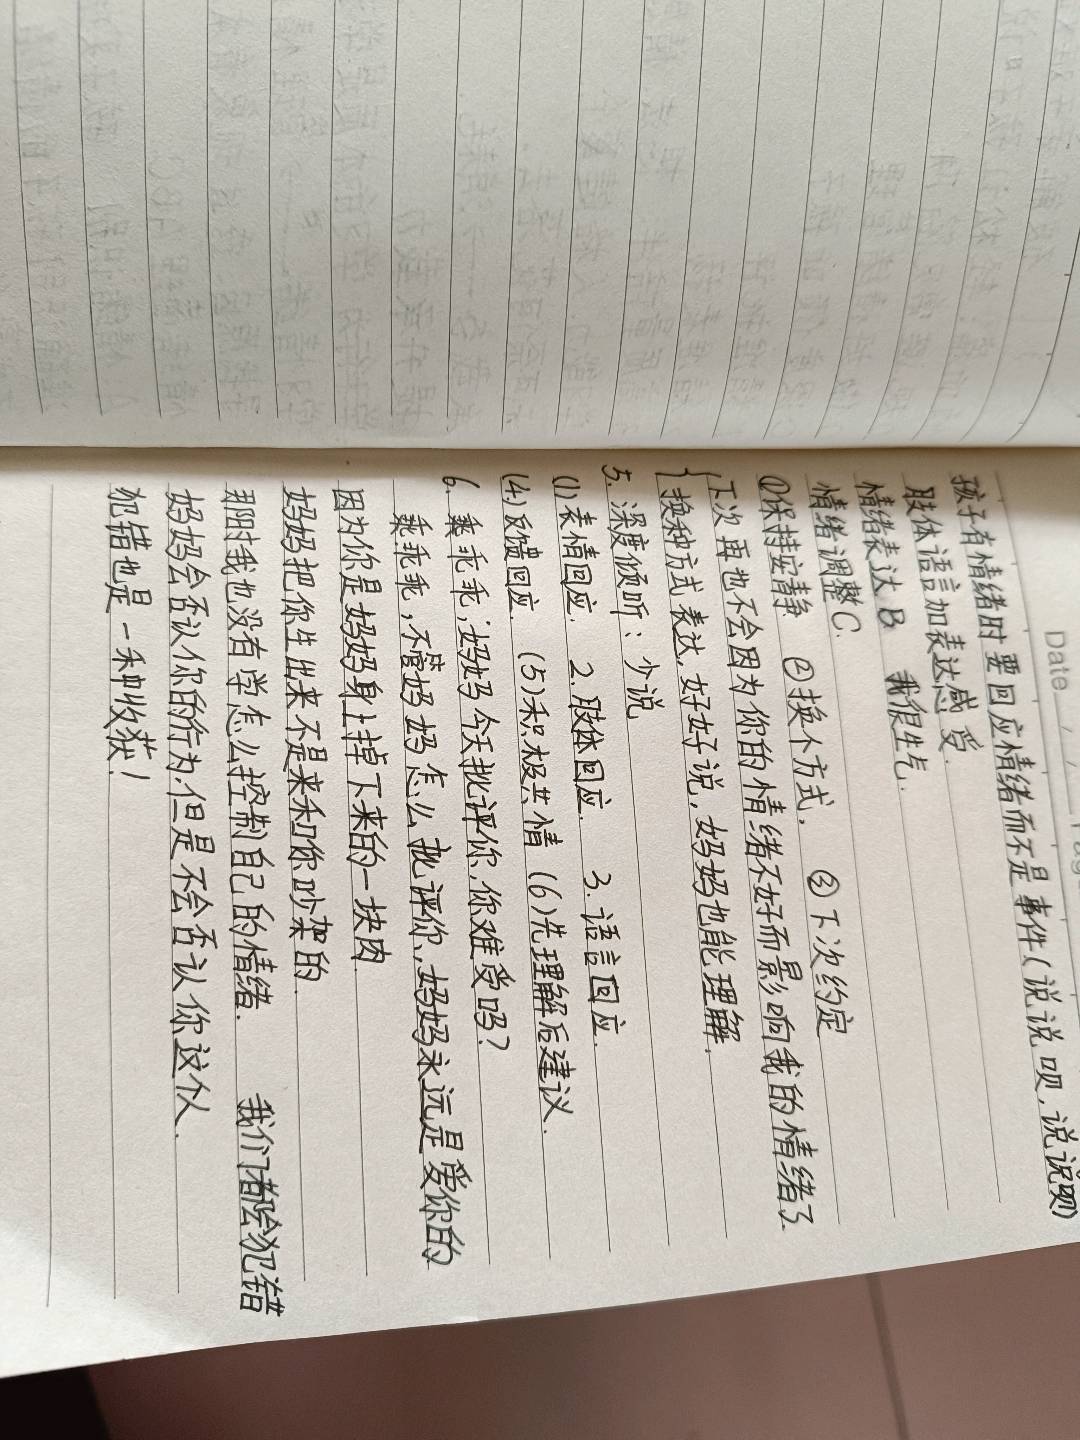 Date / /
孩子有情绪时要回应情绪而不是事件(说说呗,说说呗)
肢体语言加表达感受.
情绪表达B 我很生气.
情绪调整C.
①保持安静 ②换个方式, ③下次约定
下次再也不会因为你的情绪不好而影响我的情绪了.
换种方式表达,好好说,妈妈也能理解.
5. 深度倾听:少说
(1)表情回应. 2.肢体回应. 3.语言回应.
(4)反馈回应. (5)积极共情 (6)先理解后建议.
6.乘乖乖,妈妈今天批评你,你难受吗?
乘乖乖,不管妈妈怎么批评你,妈妈永远是爱你的
因为你是妈妈身上掉下来的一块肉.
妈妈把你生出来不是来和你吵架的.
那时我也没有学怎么控制自己的情绪. 我们都会犯错
妈妈会否认你的行为,但是不会否认你这个人.
犯错也是一种收获!